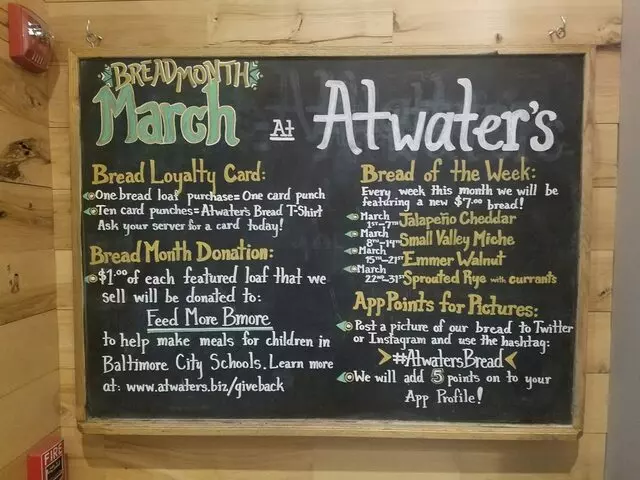 BREAD MONTH
March At Atwater's
Bread Loyalty Card:
One bread loaf purchase = One card punch
Ten card punches = Atwater's Bread T-Shirt
Ask your server for a card today!
Bread Month Donation:
$1.00 of each featured loaf that we
sell will be donated to:
Feed More Bmore
to help make meals for children in
Baltimore City Schools. Learn more
at: www.atwaters.biz/giveback
Bread of the Week:
Every week this month we will be
featuring a new $7.00 bread!
March 1st-7th Jalapeño Cheddar
March 8th-14th Small Valley Miche
March 15th-21st Emmer Walnut
March 22nd-31st Sprouted Rye with currants
App Points for Pictures:
Post a picture of our bread to Twitter
or Instagram and use the hashtag:
#AtwatersBread
We will add 5 points on to your
App Profile!
FIRE